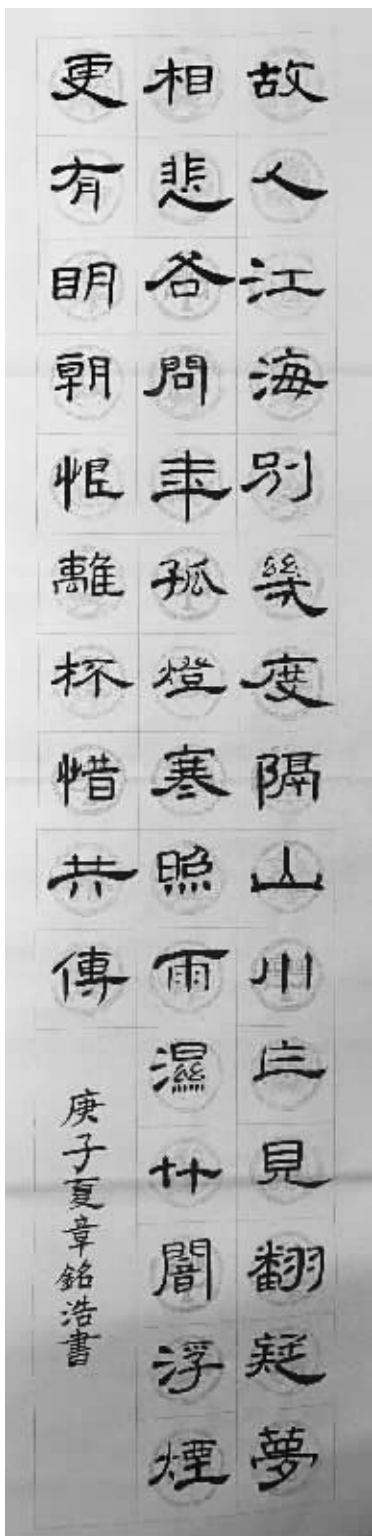 故人江海別幾度隔山川乍見翻疑夢
相悲各問年孤燈寒照雨濕竹闇浮煙
更有眀朝恨離杯惜共傳
庚子夏章銘浩書